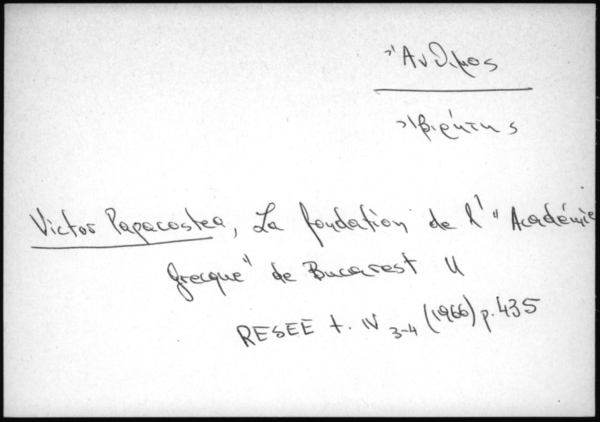 Ἄνθιμος
Ἰβιρήτης
Victor Papacostea, La fondation de l' "Académie
grecque" de Bucarest II
RESEE t. IV 3-4 (1966) p. 435